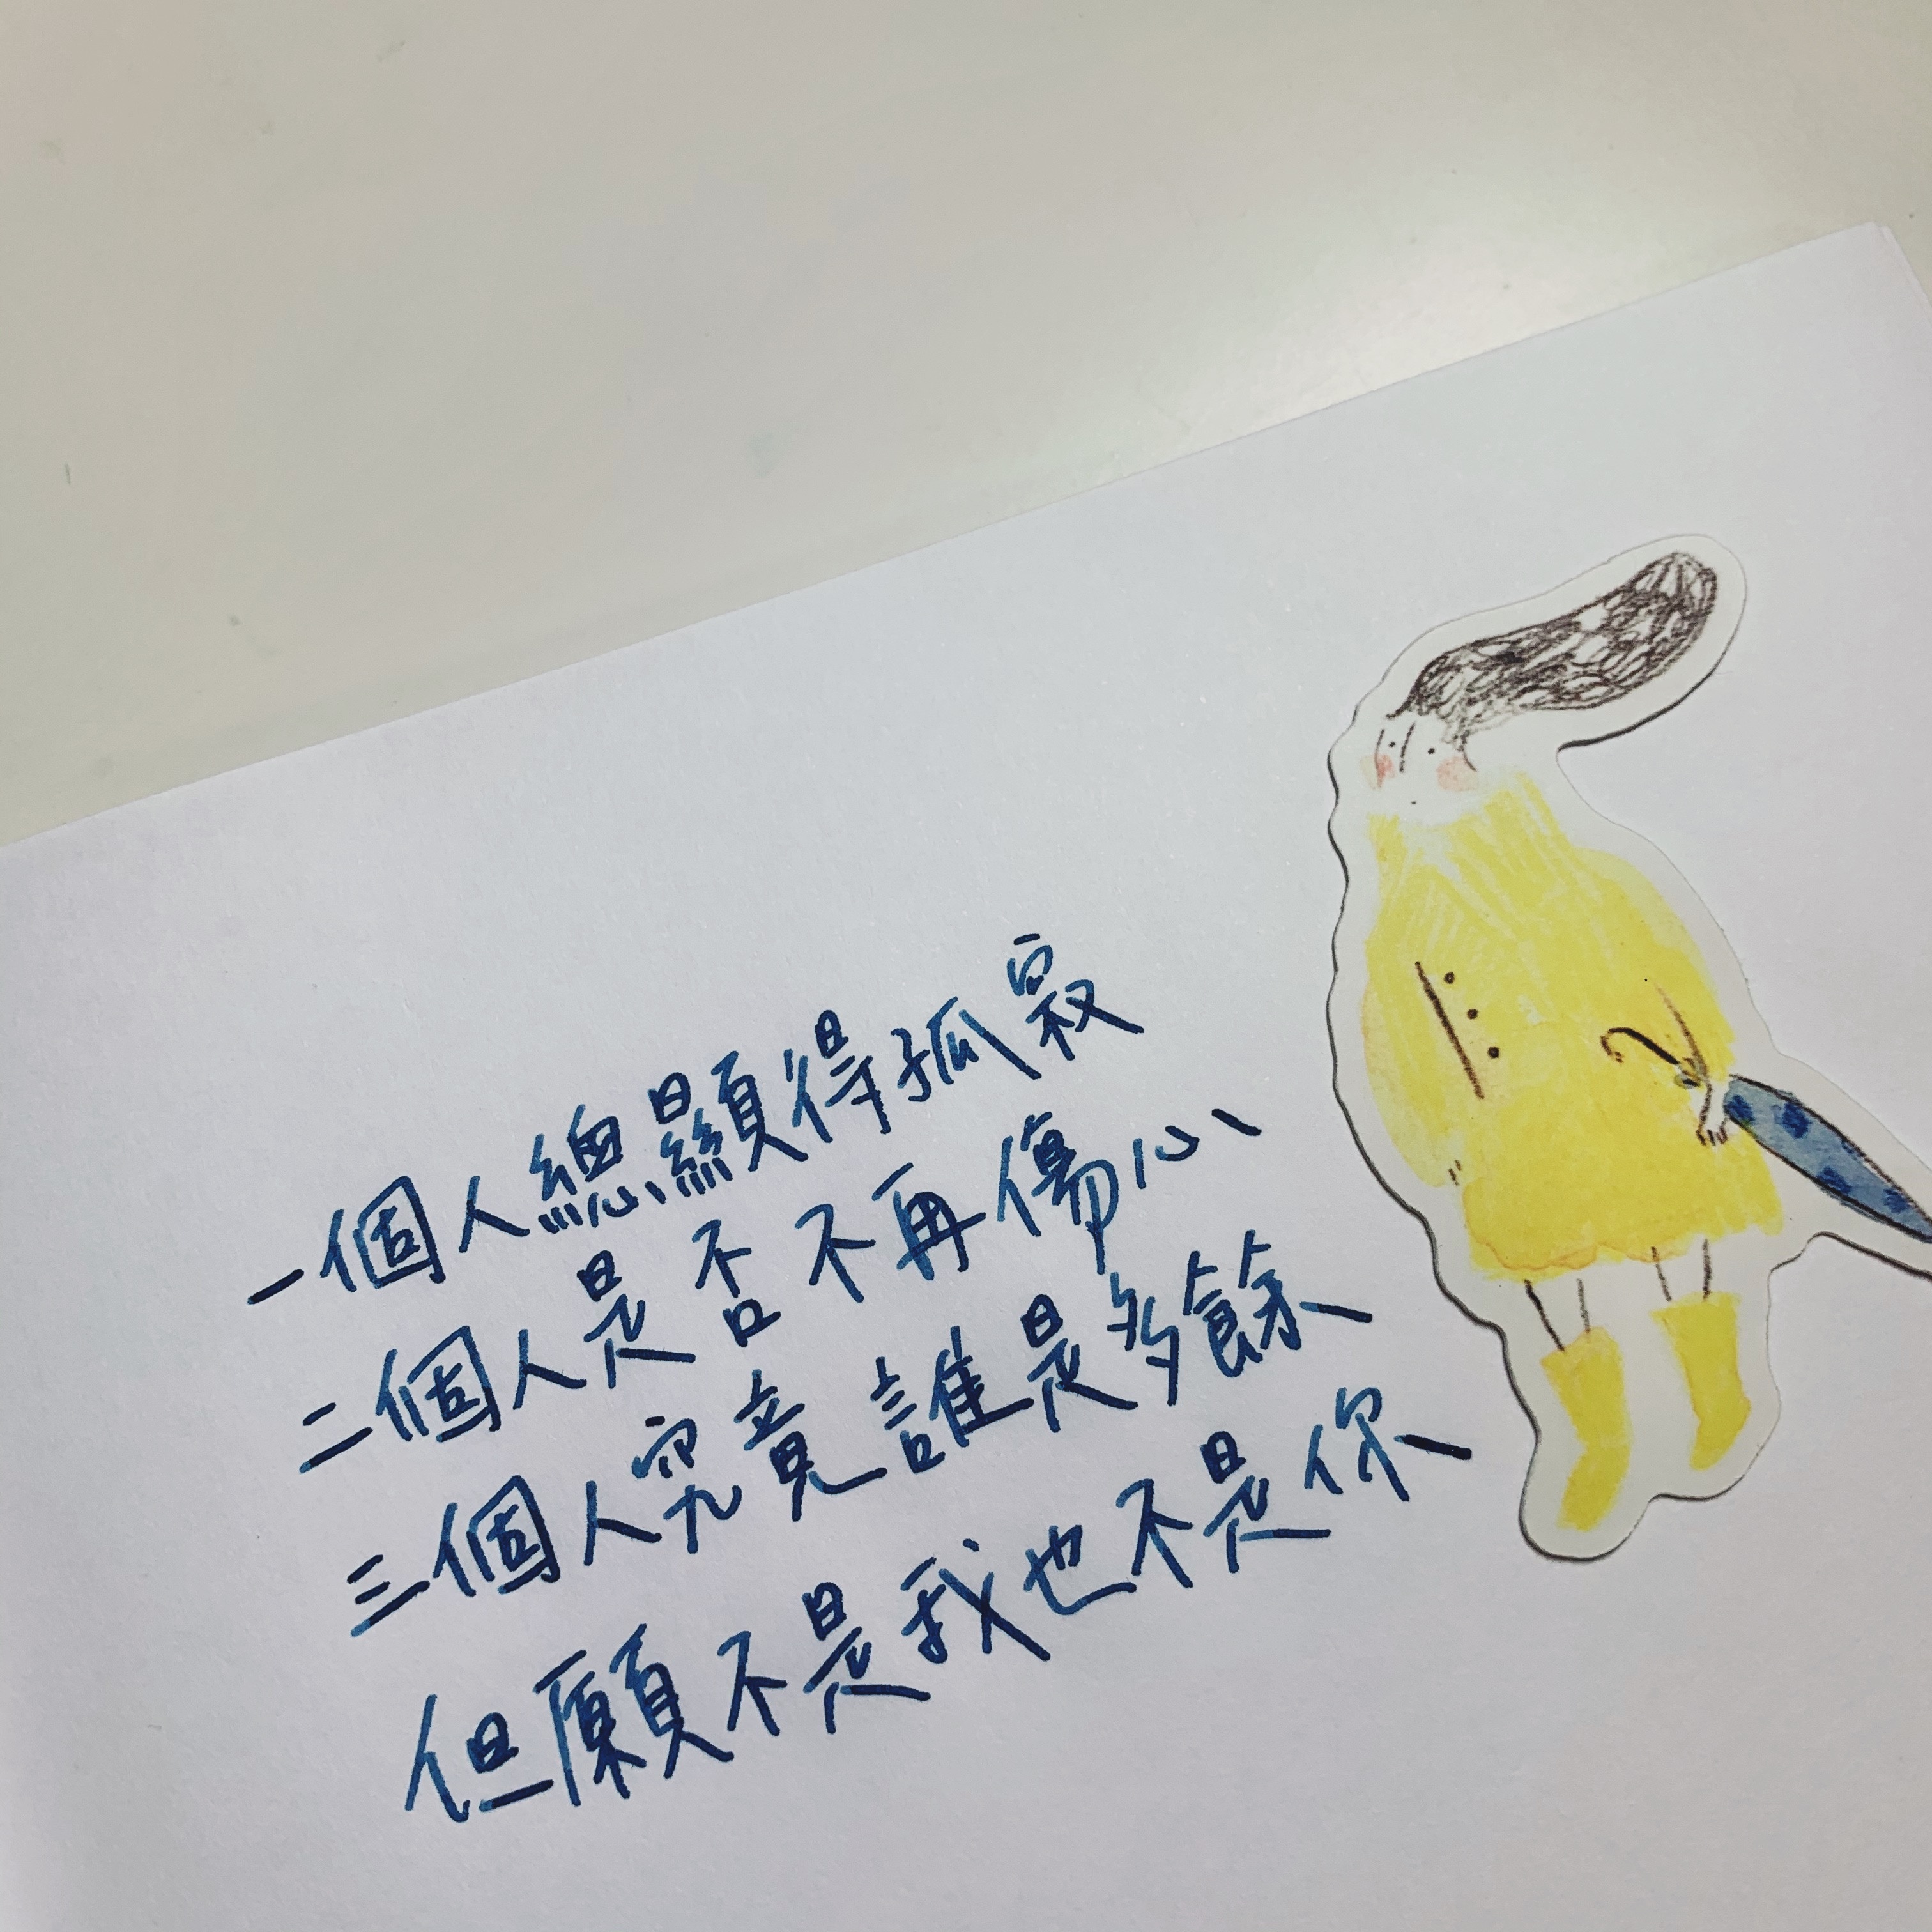 一個人總顯得孤寂
二個人是否不再傷心
三個人究竟誰是多餘
但願不是我也不是你